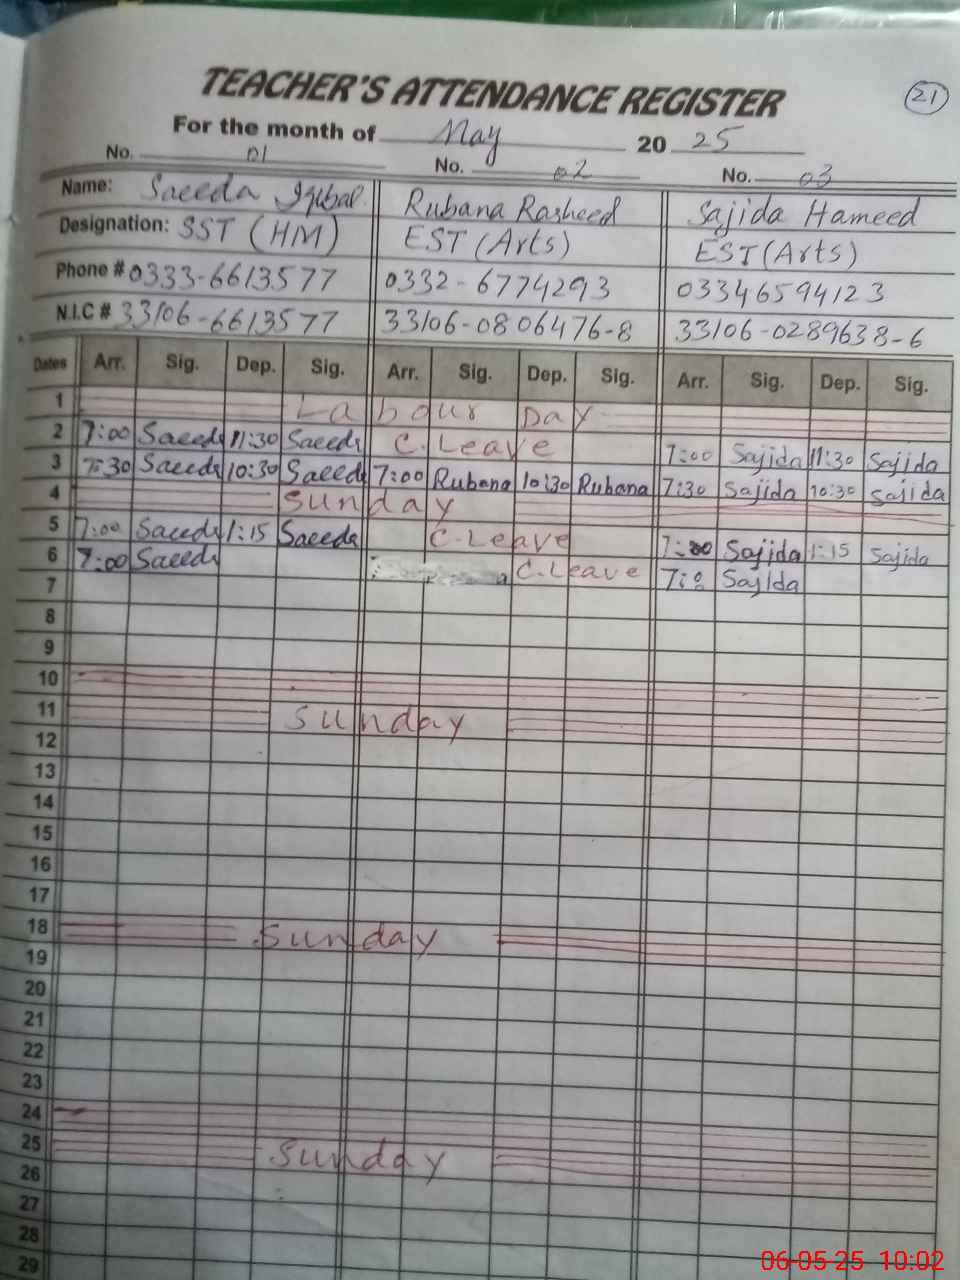 TEACHER'S ATTENDANCE REGISTER
21
For the month of May 20 25
No. 01 No. 02 No. 03
Name: Saeeda Iqbal Rubana Rasheed Sajida Hameed
Designation: SST (HM) EST (Arts) EST (Arts)
Phone # 0333-6613577 0332-6774293 03346594123
N.I.C # 33106-6613577 33106-0806476-8 33106-0289638-6
Dates Arr. Sig. Dep. Sig. Arr. Sig. Dep. Sig. Arr. Sig. Dep. Sig.
1 Labour Day
2 7:00 Saeeda 11:30 Saeeda C. Leave 7:00 Sajida 11:30 Sajida
3 7:30 Saeeda 10:30 Saeeda 7:00 Rubana 10:30 Rubana 7:30 Sajida 10:30 Sajida
4 Sunday
5 7:00 Saeeda 1:15 Saeeda C. Leave 7:00 Sajida 1:15 Sajida
6 7:00 Saeeda C. Leave 7:0 Sajida
7
8
9
10
11 Sunday
12
13
14
15
16
17
18 Sunday
19
20
21
22
23
24
25 Sunday
26
27
28
29
06-05-25 10:02